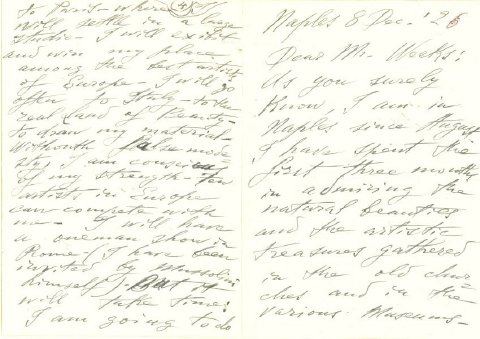 Naples 8 Dec. '25
Dear Mr. Weeks:
As you surely
know, I am in
Naples since August
I have spent the
first three months
in admiring the
natural beauties
and the artistic
treasures gathered
in the old chur
ches and in the
various Museums-
to Paris- where I
will settle in a large
Studio- I will exibit
and win my place
among the best artists
of Europe- I will go
often to Italy- to the
real land of Beauty-
to draw my material
Withouth false mode
sty, I am conscious
of my strength- ten
artists in Europe
can compete with
me- I will have
a oneman show in
Rome (I have been
invited by Mussolini
himself). But it
will take time!
I am going to do